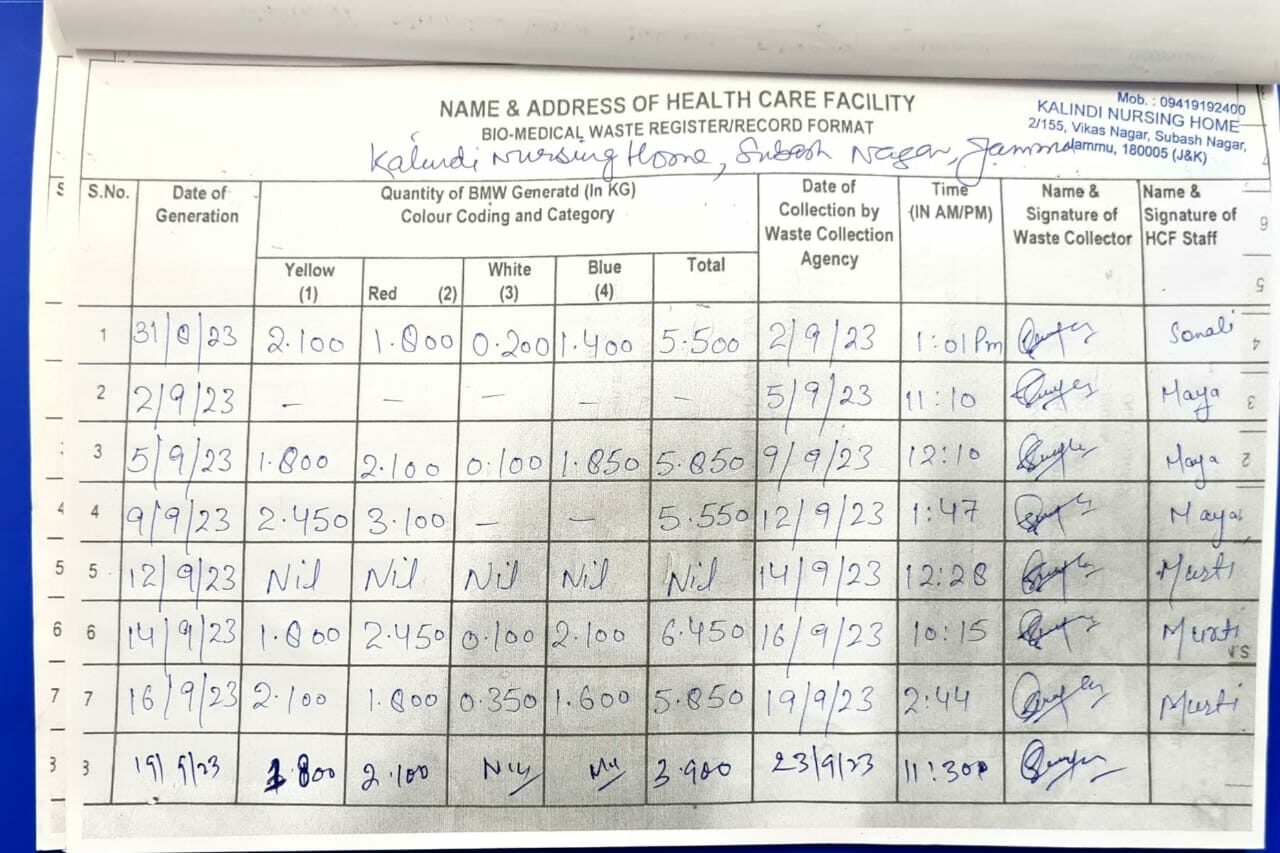 NAME & ADDRESS OF HEALTH CARE FACILITY
BIO-MEDICAL WASTE REGISTER/RECORD FORMAT
Mob. : 09419192400
KALINDI NURSING HOME
2/155, Vikas Nagar, Subash Nagar,
Jammu, 180005 (J&K)
Kalindi Nursing Home, Subash Nagar, Jammu
S.No. Date of Generation Quantity of BMW Generatd (In KG) Colour Coding and Category Date of Collection by Waste Collection Agency Time (IN AM/PM) Name & Signature of Waste Collector Name & Signature of HCF Staff
Yellow (1) Red (2) White (3) Blue (4) Total
1 31/8/23 2.100 1.800 0.200 1.400 5.500 2/9/23 1:01Pm Sonali
2 2/9/23 – – – – – 5/9/23 11:10 Maya
3 5/9/23 1.800 2.100 0.100 1.850 5.850 9/9/23 12:10 Maya
4 9/9/23 2.450 3.100 – – 5.550 12/9/23 1:47 Maya
5 12/9/23 Nil Nil Nil Nil Nil 14/9/23 12:28 Murti
6 14/9/23 1.800 2.450 0.100 2.100 6.450 16/9/23 10:15 Murti
7 16/9/23 2.100 1.800 0.350 1.600 5.850 19/9/23 2:44 Murti
8 19/9/23 1.800 2.100 Nil Nil 3.900 23/9/23 11:30